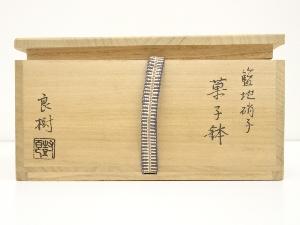 藍地硝子
菓子鉢
良樹